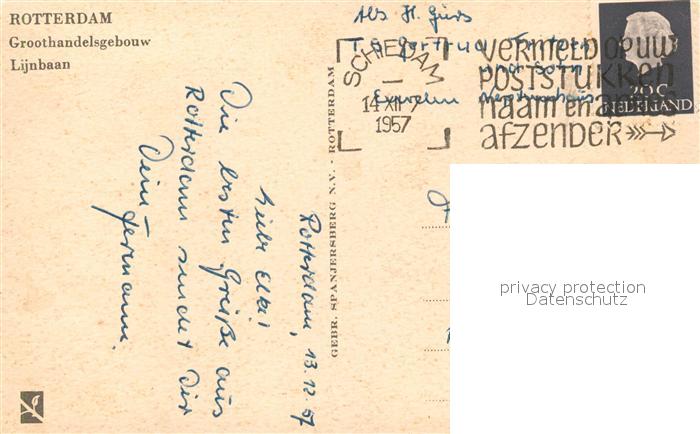 ROTTERDAM
Groothandelsgebouw
Lijnbaan
Abs H. Geers
T.S. Gertrud
SCHIEDAM
14 XII 7
1957
VERMELD OP UW
POSTSTUKKEN
NAAM EN ADRES
AFZENDER
20 C
NEDERLAND
GEBR. SPANJERSBERG N.V. - ROTTERDAM
Rotterdam, 13.12.57
Liebe Elke!
Die besten Grüße aus
Rotterdam sendet Dir
Dein Hermann.
privacy protection
Datenschutz